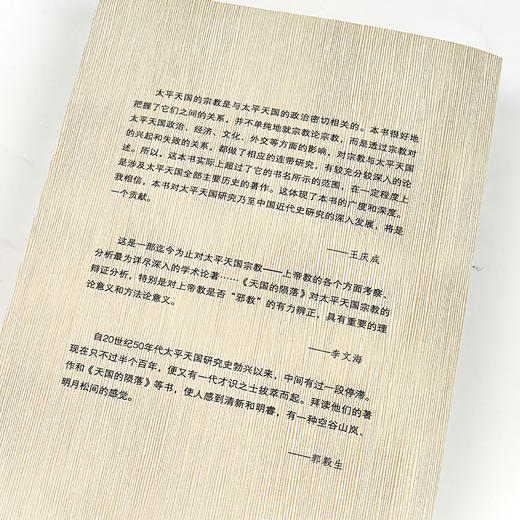 太平天国的宗教是与太平天国的政治密切相关的。本书很好地
把握了它们之间的关系，并不单纯地就宗教论宗教，而是透过宗教对
太平天国政治、经济、文化、外交等方面的影响，对宗教与太平天国
的兴起和失败的关系，都做了相应的连带研究，有较充分较深入的论
述。所以，这本书实际上超过了它的书名所示的范围，在一定程度上
是涉及太平天国全部主要历史的著作。这体现了本书的广度和深度。
我相信，本书对太平天国研究乃至中国近代史研究的深入发展，将是
一个贡献。
——王庆成
这是一部迄今为止对太平天国宗教——上帝教的各个方面考察、
分析最为详尽深入的学术论著……《天国的陨落》对太平天国宗教的
辩证分析，特别是对上帝教是否“邪教”的有力辨正，具有重要的理
论意义和方法论意义。
——李文海
自20世纪50年代太平天国研究史勃兴以来，中间有过一段停滞。
现在只不过半个百年，便又有一代才识之士拔萃而起。拜读他们的著
作和《天国的陨落》等书，使人感到清新和明睿，有一种空谷山岚、
明月松间的感觉。
——郭毅生